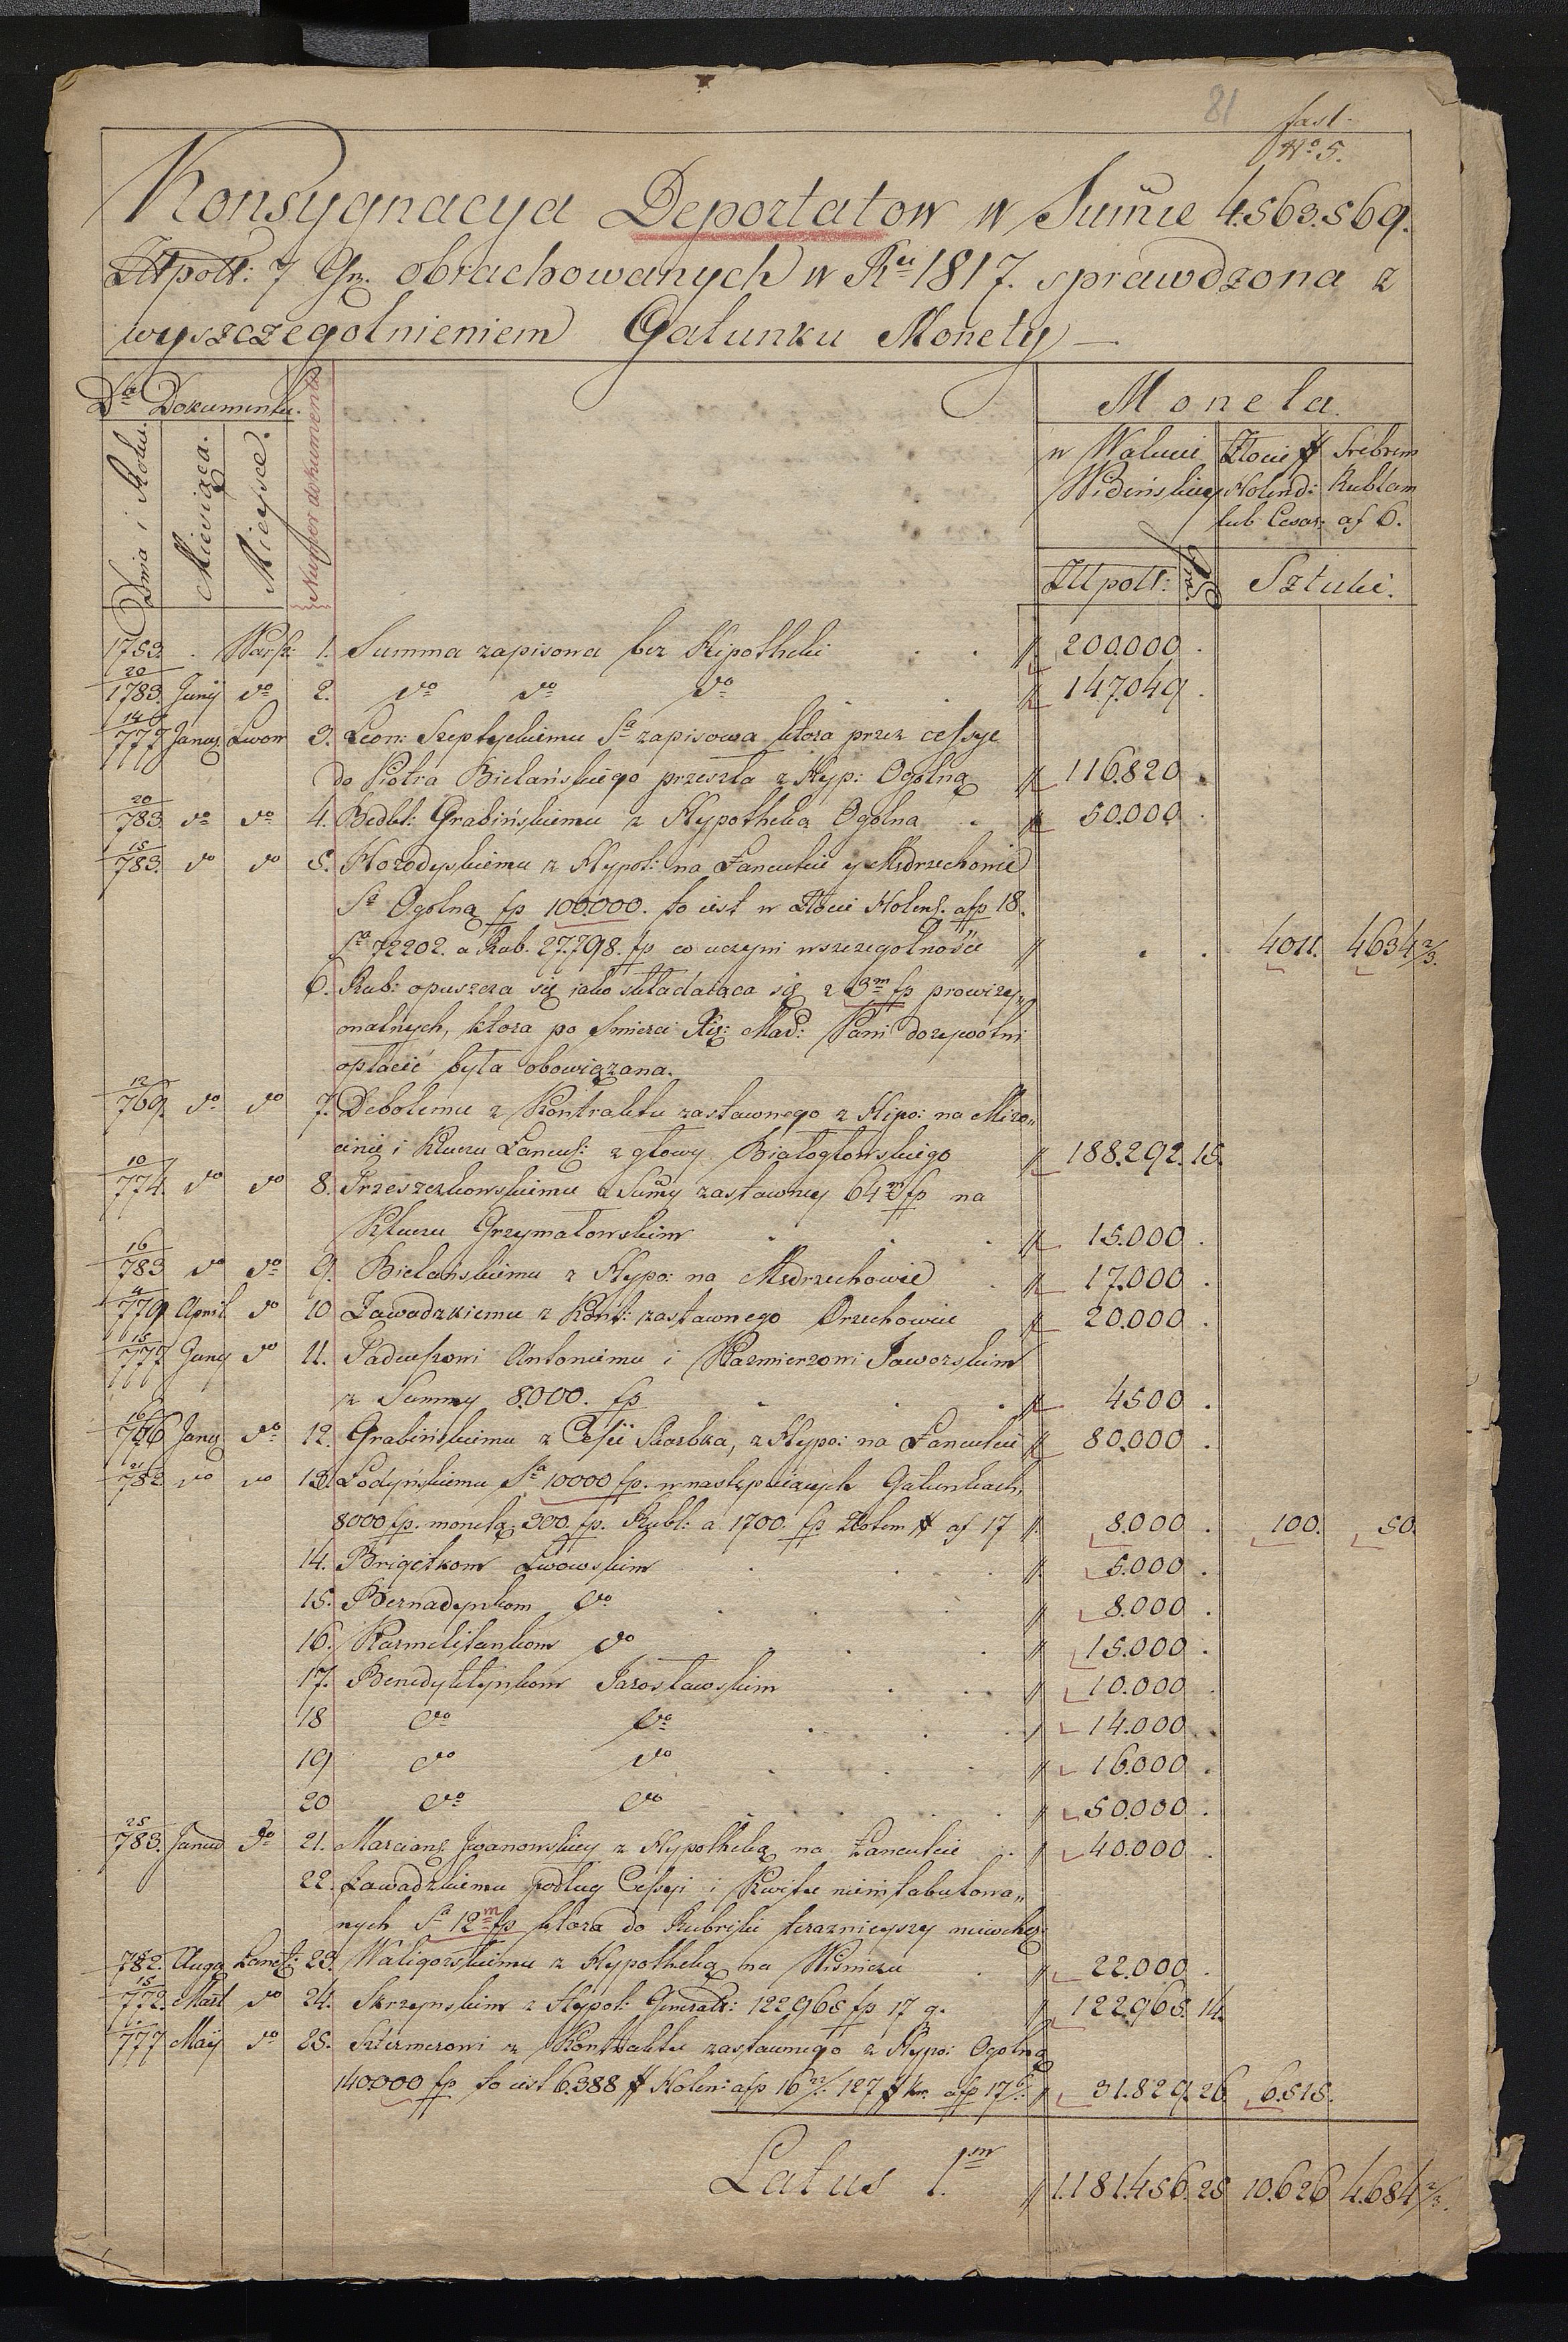 81
fasc.
No 5.
Konsygnacya Deportatow w Sumie 4.563.569.
Złlpoll: 7 Gr. obrachowanych w Ru 1817. sprawdzona z
wyszczegolnieniem Gatunku Monety —
Da Dokumentu.
Dnia i Roku. Miesiąca. Mieysce. Numer dokumentu
Moneta.
w Walucie Złocie # Srebrem
Widenskiey Holend: Rublam
lub Cesar: af 6.
Złlpoll: gr. Sztuki.
1783. Warsz: 1. Summa zapisowa bez Hipotheki 200.000
20/1783. Junij do 2. do do do 147.049
14/777 Janu. Lwow 3. Leon: Szeptyckiemu Sa zapisowa ktora przez cessye
do Piotra Bielańskiego przeszła z Hyp: Ogolną 116.820
20/783 do do 4. Bedbl: Grabińskiemu z Hypotheką Ogolna 50.000
15/783. do do 5. Horodyskiemu z Hypot: na Łancucie y Mędrzechowie
Sa Ogolną fp 100.000. to iest w Złocie Holend. afp 18.
Sa 72202. a Rub. 27.798. fp co uczyni w szczegolności 4011. 4634 2/3.
6. Rub: opuszcza się iako składaiąca się z 3m fp prowizy„
onalnych, ktora po smierci Xię: Mad: Pani dozywotni
opłacić była obowiązana.
12/769. do do 7. Debolemu z Kontraktu zastawnego z Hipo: na Miro„
cinie i Kluczu Lancus: z głowy Białogłowskiego 188.292. 15.
10/774. do do 8. Trzeszczkowskiemu z Sumy zastawney 64m fp na
Kluczu Grzymałowskim 15.000
16/783 do do 9. Bielańskiemu z Hypo: na Mędrzechowie 17.000
4/779 April. do 10 Zawadzkiemu z Kont: zastawnego Orzechowiec 20.000
15/777 Juny do 11. Tadeuszowi Antoniemu i Kazmierzowi Jaworskim
z Summy 8.000. fp 4500
16/766 Janu do 12. Grabińskiemu z Cesii Skarbka, z Hypo: na Łancucie 80.000
21/782 do do 13. Łodyńskiemu Sa 10000 fp. w następuiących Gatunkach,
8000 fp. monetą. 300. fp. Rubl: a 1700. fp Złotem # af 17 8.000 100. 50.
14. Brigitkom Lwowskim 5.000
15. Bernadynkom do 8.000
16. Karmelitankom do 15.000
17. Benedyktynkom Jarosławskim 10.000
18 do do 14.000
19 do do 16.000
20 do do 50.000
25/783. Janua do 21. Marcianę Iwanowskiey z Hypotheką na Łancucie 40.000
22. Zawadzkiemu podług Cessyi i Kwitu nieintabulowa„
nych Sa 12m fp ktora do Rubriki teraznieyszey niewcho:
782. Augu Lanc: 23. Waligorskiemu z Hypotheką na Wisniczu 22.000
15/772. Mart do 24. Skrzynskim z Hypot: Generał: 122968 fp 17 g. 122.968. 14.
777 Maij do 25. Szteinerowi z Kontraktu zastawnego z Hypo: Ogolną
140000 fp to iest 6.388 # Holen: afp 16 22/: 127 # kr. afp 17 31.829. 26. 6.515.
Latus 1.m 1.181.456. 25 10.626 4.684 2/3.